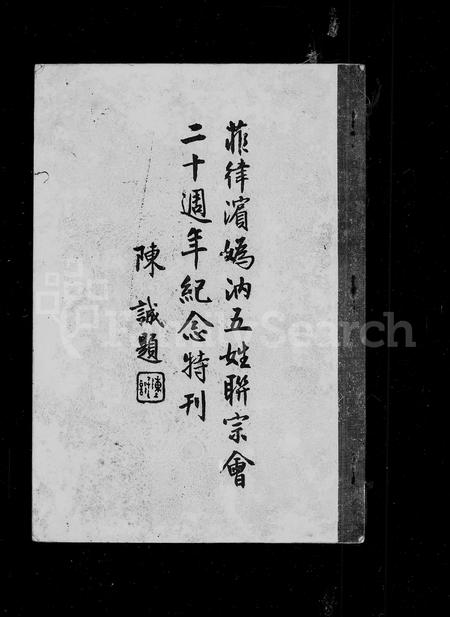 菲律濱媯汭五姓聯宗會
二十週年紀念特刊
陳誠題
陳誠
Search